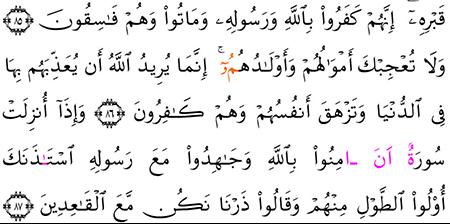 قَبْرِهِۦٓ ۖ إِنَّهُمْ كَفَرُواْ بِٱللَّهِ وَرَسُولِهِۦ وَمَاتُواْ وَهُمْ فَٰسِقُونَ ۝٨٥
وَلَا تُعْجِبْكَ أَمْوَٰلُهُمْ وَأَوْلَٰدُهُمُۥٓ ۚ إِنَّمَا يُرِيدُ ٱللَّهُ أَن يُعَذِّبَهُم بِهَا
فِى ٱلدُّنْيَا وَتَزْهَقَ أَنفُسُهُمْ وَهُمْ كَٰفِرُونَ ۝٨٦ وَإِذَآ أُنزِلَتْ
سُورَةٌ اَنَ ـٰامِنُواْ بِٱللَّهِ وَجَٰهِدُواْ مَعَ رَسُولِهِ ٱسْتَـٰٔذَنَكَ
أُوْلُواْ ٱلطَّوْلِ مِنْهُمْ وَقَالُواْ ذَرْنَا نَكُن مَّعَ ٱلْقَٰعِدِينَ ۝٨٧